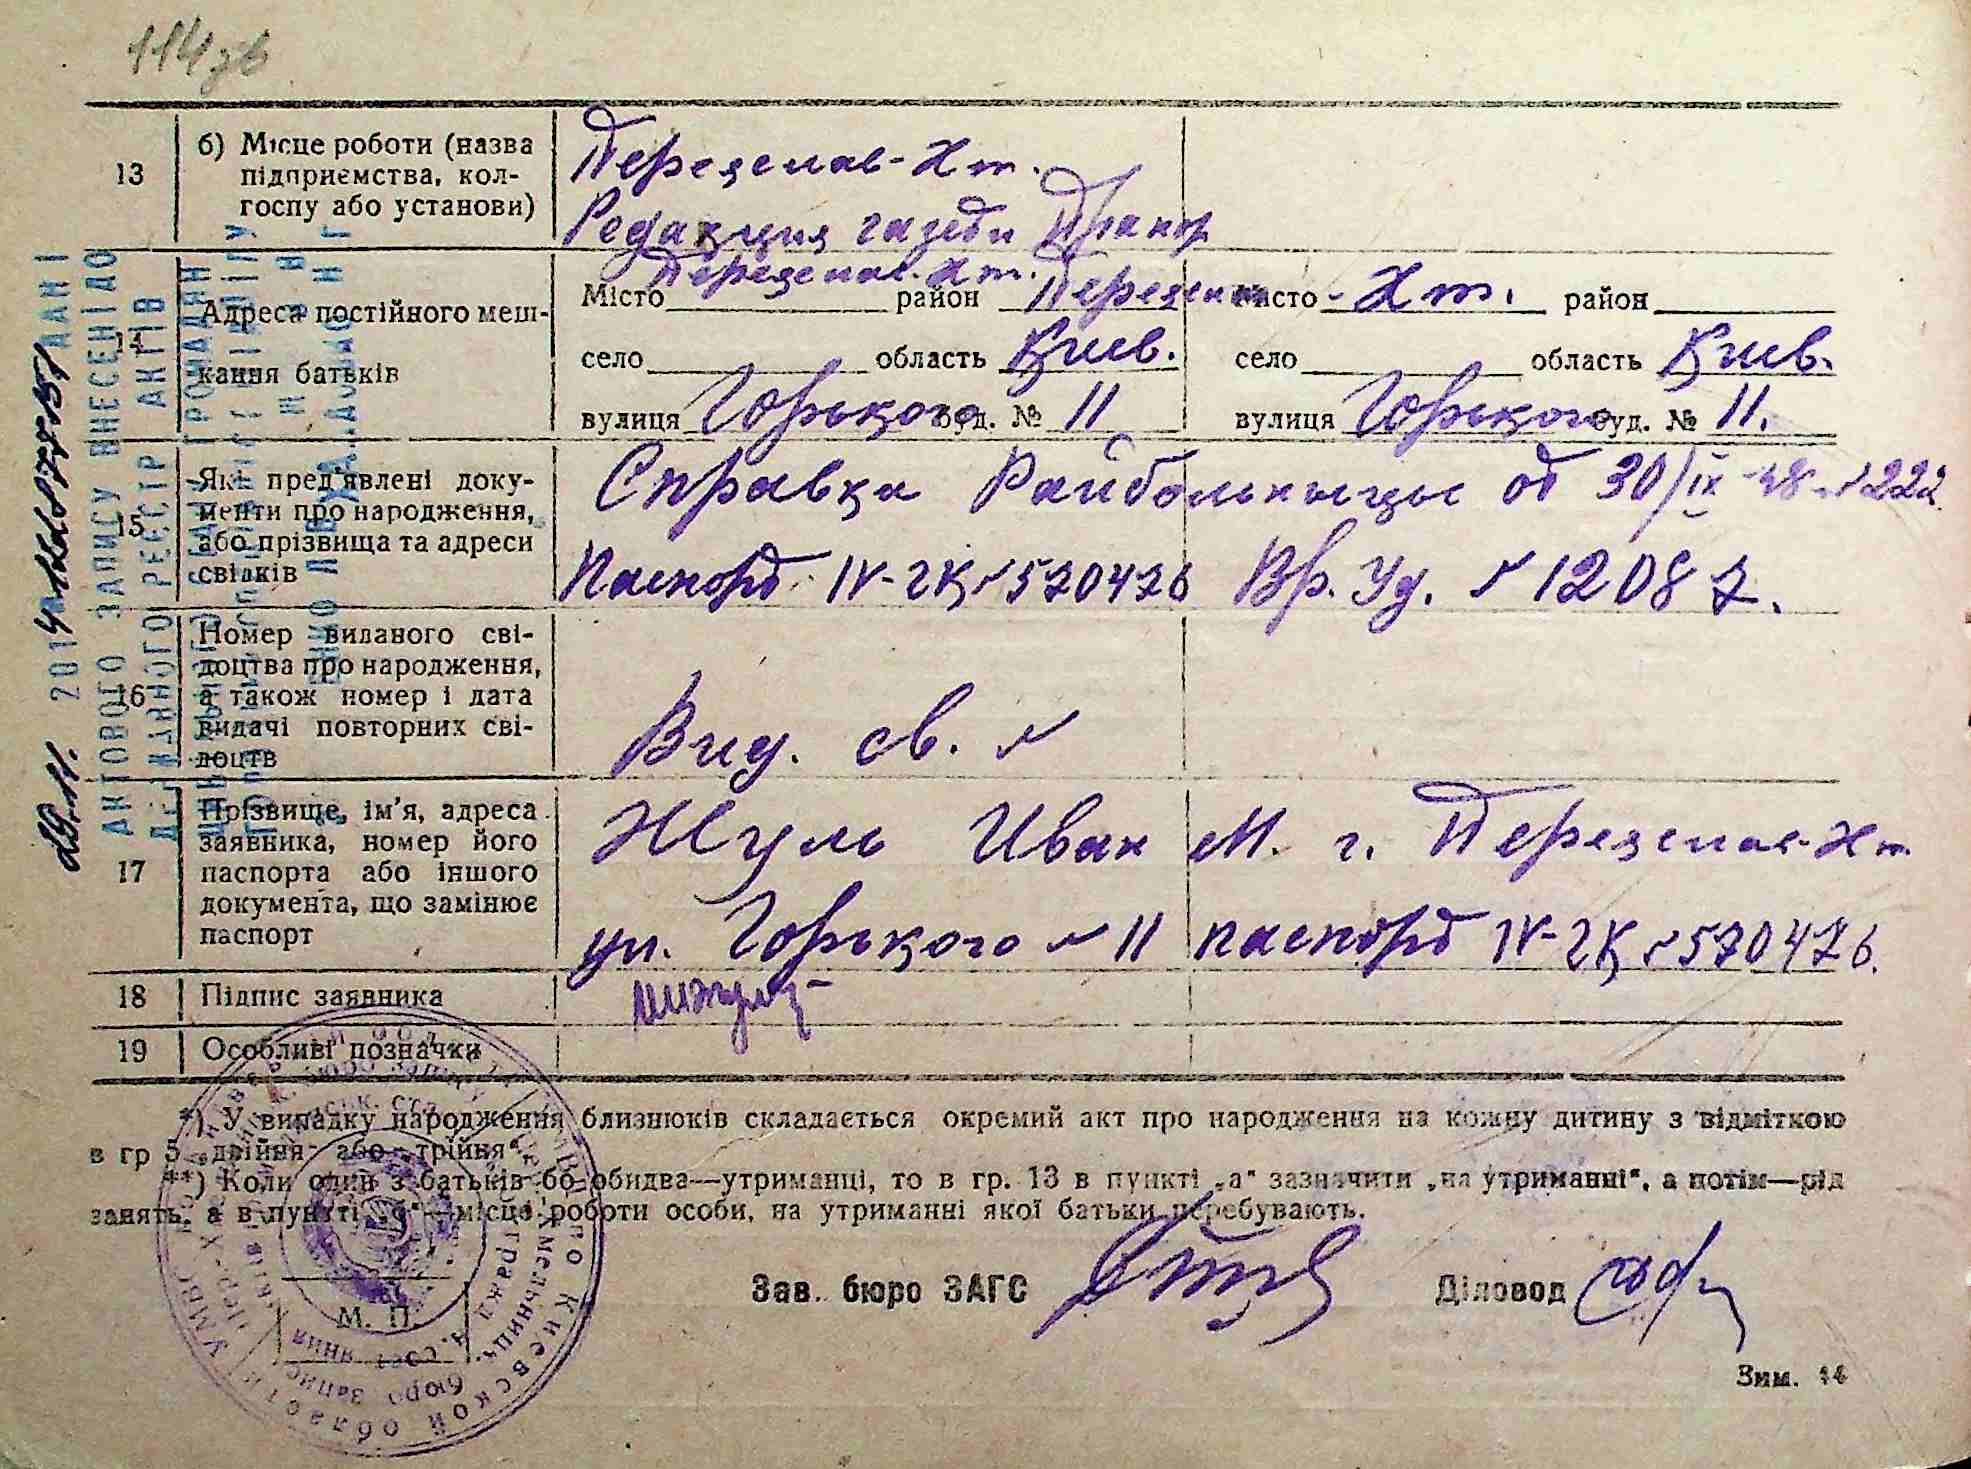 114 зв
13
б) Місце роботи (назва підприємства, кол-
госпу або установи)
Переяслав-Хм.
Редакция газеты Прапор
14
Адреса постійного меш-
кання батьків
Місто Переяслав-Хм. район Переяслав Місто -Хм. район
село область Киев. село область Киев.
вулиця Горького буд. № 11 вулиця Горького буд. № 11.
15
Які пред'явлені доку-
менти про народження,
або прізвища та адреси
свідків
Справка Райбольницы от 30/IX-48 №222
Паспорт IV-ЧК №570476 Вр. Уд. № 12087.
16
Номер виданого сві-
доцтва про народження,
а також номер і дата
видачі повторних сві-
доцтв
Вид. св. №
17
Прізвище, ім'я, адреса
заявника, номер його
паспорта або іншого
документа, що замінює
паспорт
Жуль Иван М. г. Переяслав-Хм.
ул. Горького № 11 паспорт IV-ЧК №570476.
18 Підпис заявника
19 Особливі позначки
*) У випадку народження близнюків складається окремий акт про народження на кожну дитину з відміткою
в гр 5 „двійня" або „трійня".
**) Коли один з батьків бо обидва—утриманці, то в гр. 13 в пункті „а" зазначити „на утриманні", а потім—рід
занять, а в пункті „б"—місце роботи особи, на утриманні якої батьки перебувають.
Зав. бюро ЗАГС Діловод
М. П.
Зим. 14
29.11. 2014
АКТОВОГО ЗАПИСУ ВНЕСЕНІ ДО
ДЕРЖАВНОГО РЕЄСТР АКТІВ